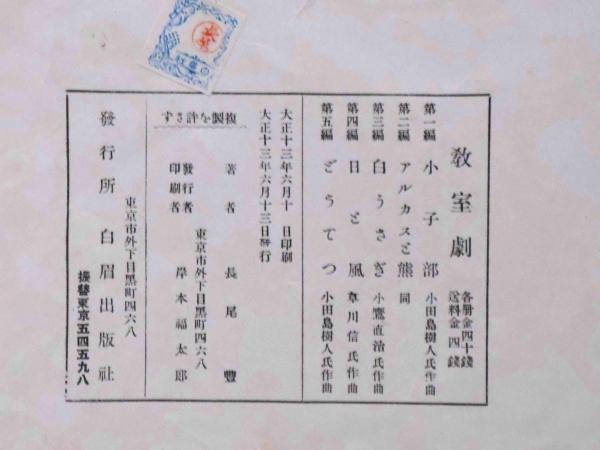 教室劇
各册金四十錢
送料金四錢
第一編 小子部 小田島樹人氏作曲
第二編 アルカスと熊 同
第三編 白うさぎ 小鷹直治氏作曲
第四編 日と風 草川信氏作曲
第五編 どうてつ 小田島樹人氏作曲
大正十三年六月十日印刷
大正十三年六月十三日發行
複製を許さず
著者 長尾豐
東京市外下目黑町四六八
發行者
印刷者
岸本福太郎
東京市外下目黑町四六八
發行所 白眉出版社
振替東京五四五九八